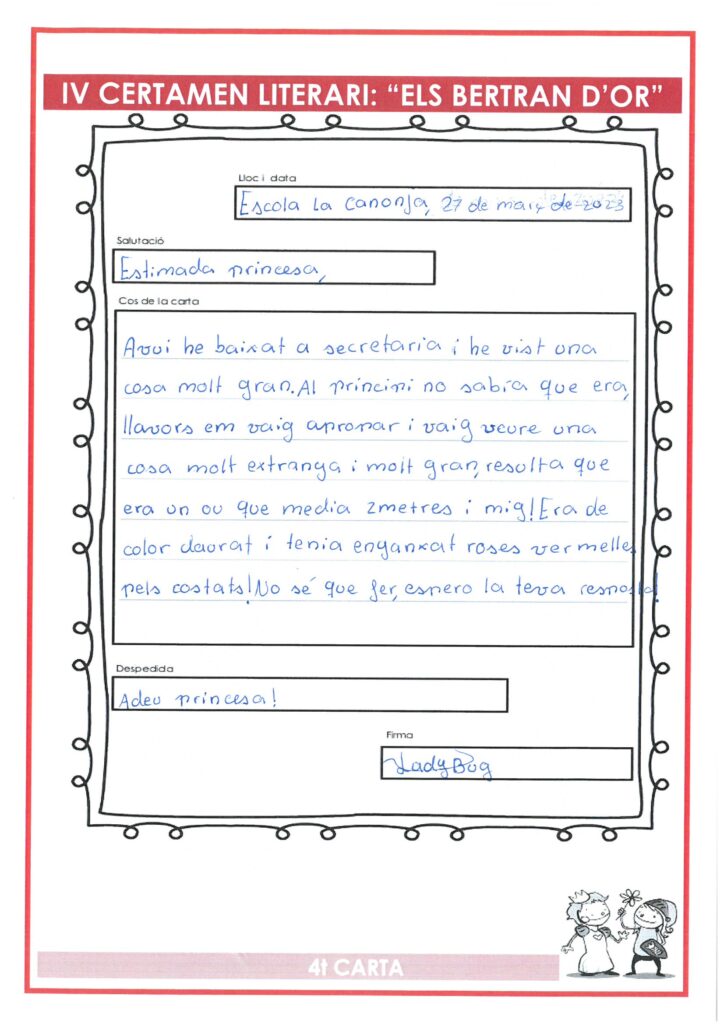 IV CERTAMEN LITERARI: “ELS BERTRAN D’OR”
Lloc i data
Escola La Canonja, 27 de març de 2023
Salutació
Estimada princesa,
Cos de la carta
Avui he baixat a secretaria i he vist una
cosa molt gran. Al principi no sabia que era,
llavors em vaig apropar i vaig veure una
cosa molt extranya i molt gran, resulta que
era un ou que media 2metres i mig! Era de
color daurat i tenia enganxat roses vermelles
pels costats! No sé que fer, espero la teva resposta!
Despedida
Adeu princesa!
Firma
LadyBug
4t CARTA